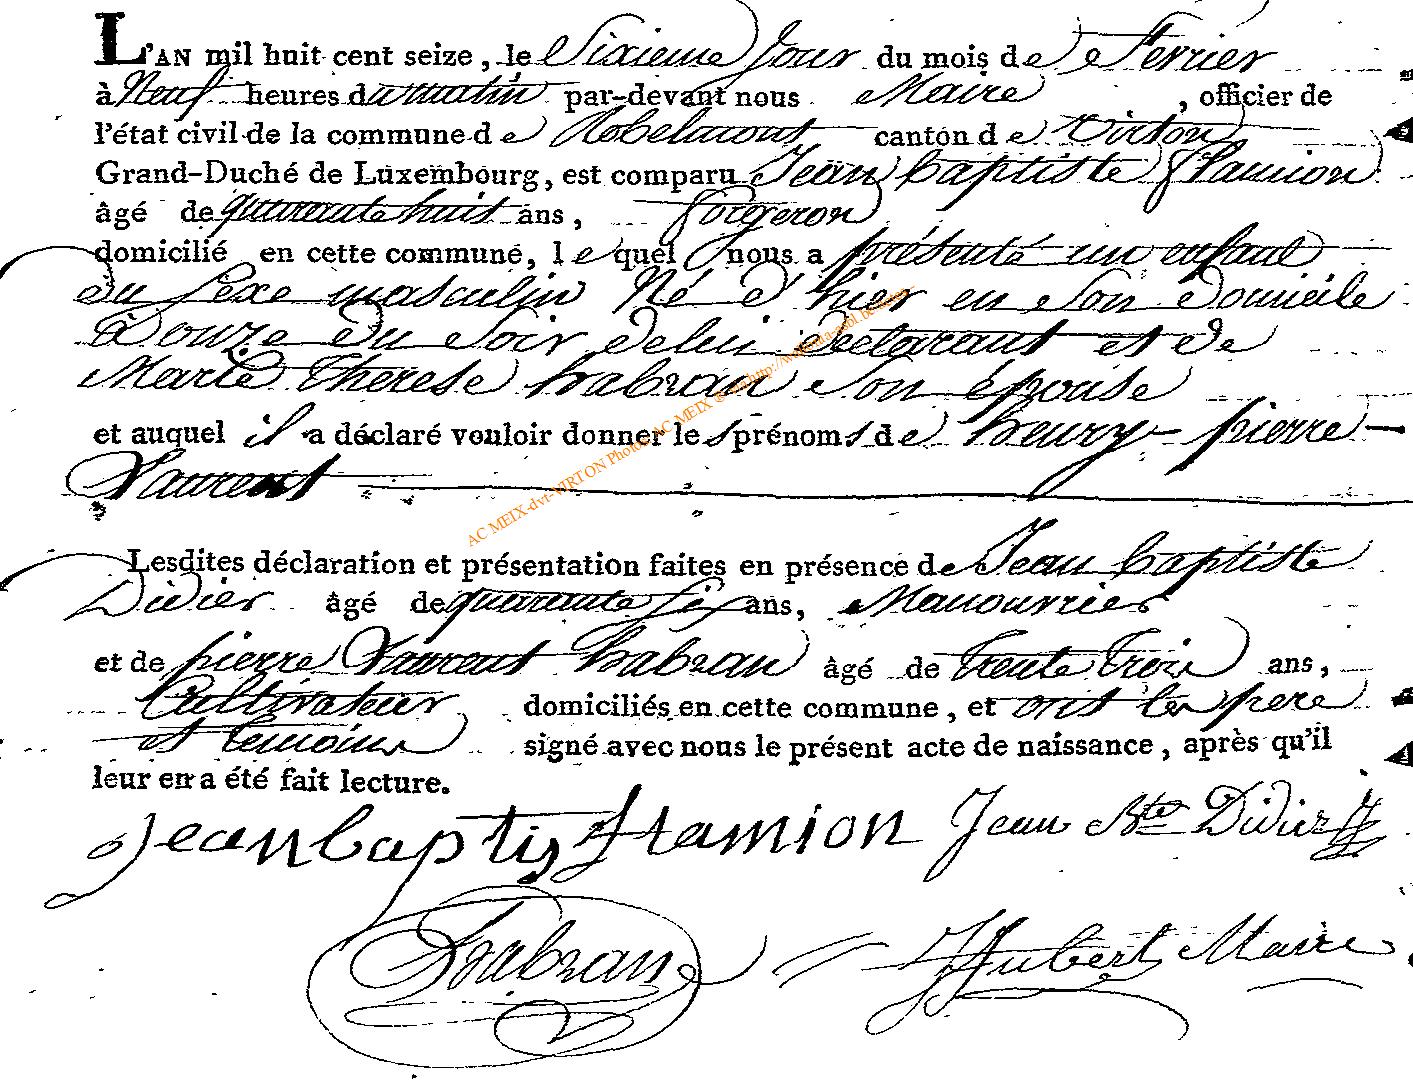 L'AN mil huit cent seize, le Sixieme Jour du mois de Fevrier
à Neuf heures du matin par-devant nous Maire, officier de
l'état civil de la commune de Robelmont canton de Virton
Grand-Duché de Luxembourg, est comparu Jean baptiste flamion
âgé de quarante huit ans, forgeron
domicilié en cette commune, lequel nous a présenté un enfant
du sexe masculin Né d'hier en son domicile
à Douze du soir de lui déclarant et de
Marie Therese habran son épouse
et auquel il a déclaré vouloir donner les prénoms de henry - pierre -
Laurent
Lesdites déclaration et présentation faites en présence de Jean baptiste
Didier âgé de quarante six ans, Manouvrier
et de pierre Laurent habran âgé de trente trois ans,
Cultivateur domiciliés en cette commune, et ont les pere
et temoins signé avec nous le présent acte de naissance, après qu'il
leur en a été fait lecture.
jean baptis flamion Jean Bte Didier
habran Hubert Maire
AC MEIX-dvt-VIRTON Photos AC MEIX